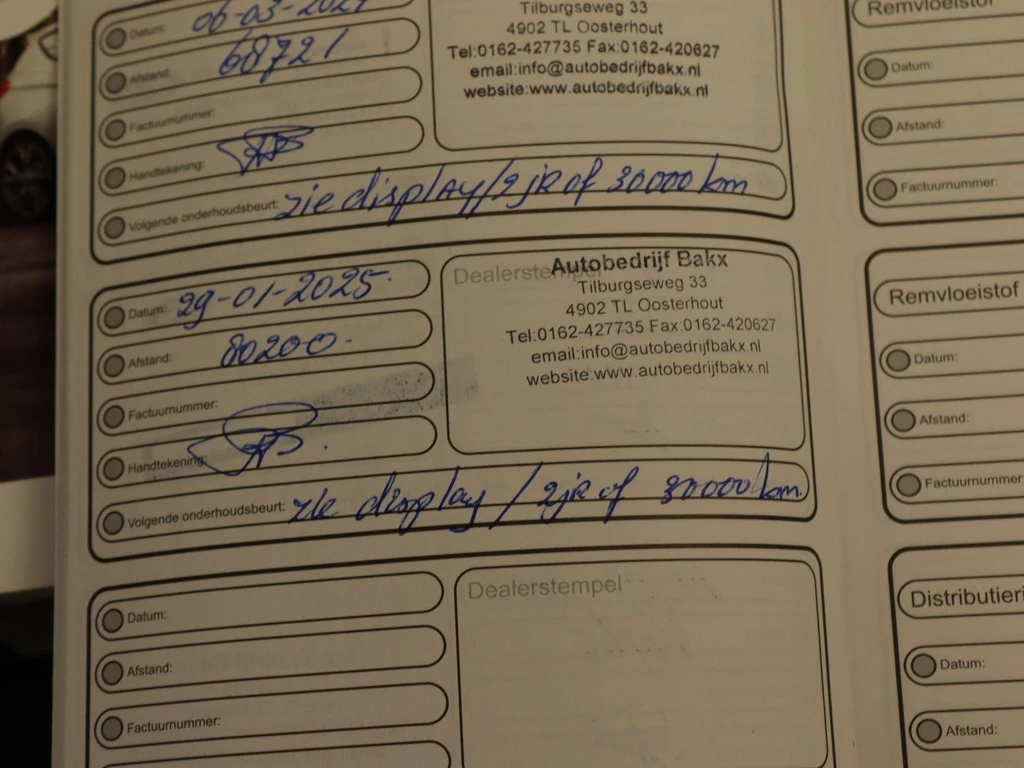 Datum: 06-03-2024
Afstand: 68721
Factuurnummer:
Handtekening:
Volgende onderhoudsbeurt: zie display/2jr of 30000 km
Tilburgseweg 33
4902 TL Oosterhout
Tel:0162-427735 Fax:0162-420627
email:info@autobedrijfbakx.nl
website:www.autobedrijfbakx.nl
Datum: 29-01-2025.
Afstand: 80200.
Factuurnummer:
Handtekening:
Volgende onderhoudsbeurt: zie display / 2jr of 30000 km.
Dealerstempel
Autobedrijf Bakx
Tilburgseweg 33
4902 TL Oosterhout
Tel:0162-427735 Fax:0162-420627
email:info@autobedrijfbakx.nl
website:www.autobedrijfbakx.nl
Datum:
Afstand:
Factuurnummer:
Dealerstempel
Remvloeistof
Datum:
Afstand:
Factuurnummer:
Remvloeistof
Datum:
Afstand:
Factuurnummer
Distributieri
Datum:
Afstand: